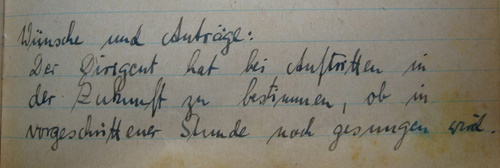 Wünsche und Anträge:
Der Dirigent hat bei Auftritten in
der Zukunft zu bestimmen, ob in
vorgeschrittener Stunde noch gesungen wird.